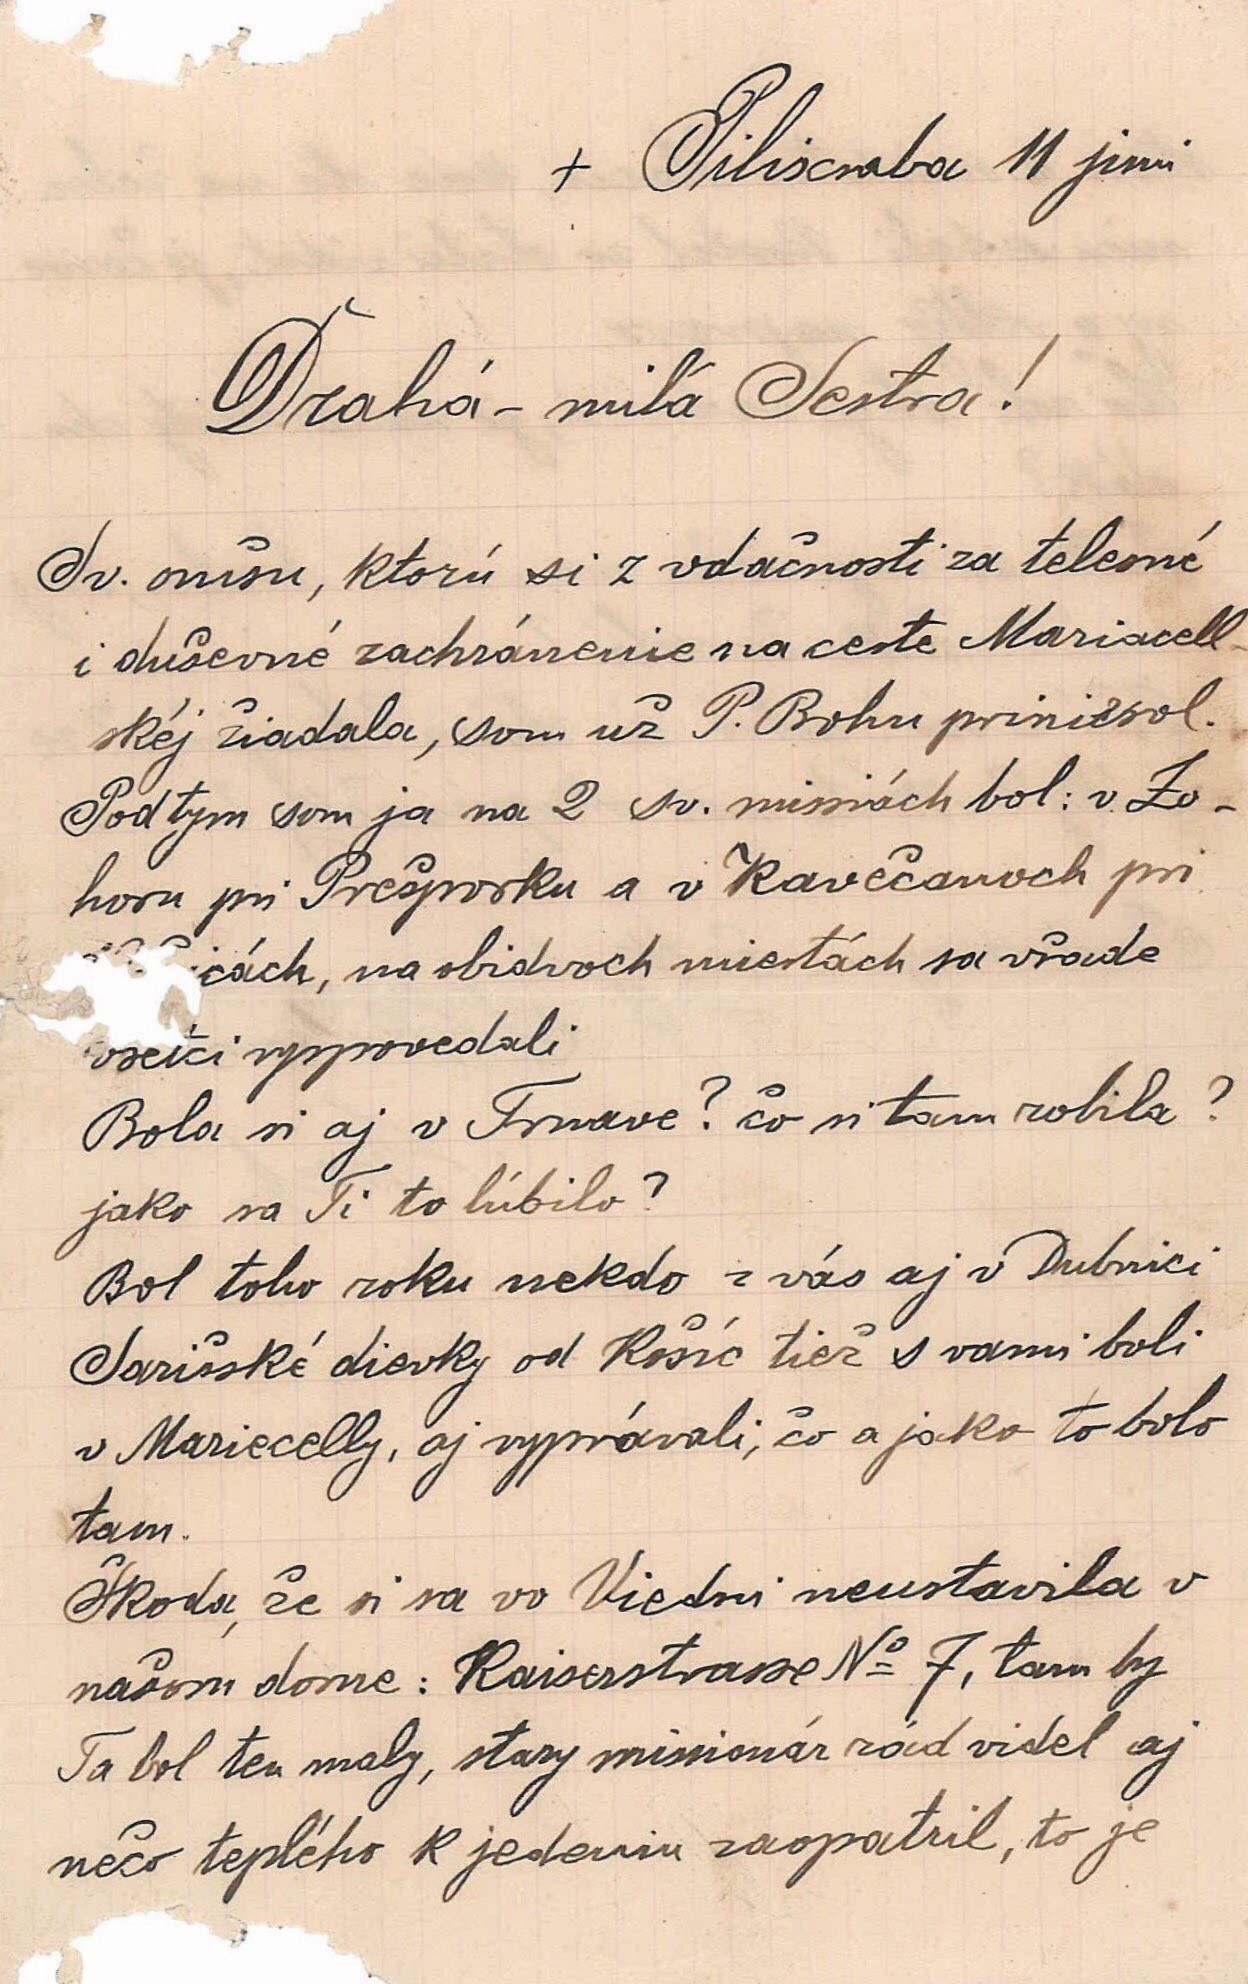 + Piliscsaba 11 juni
Drahá - milá Sestra!
Sv. omšu, ktorú si z vdačnosti za telesné
i duševné zachránenie na ceste Mariacell-
skéj žiadala, som už P. Bohu priniesol.
Podtym som ja na 2 sv. missiách bol: v Zo-
horu pri Prešporku a v Kavečanoch pri
icách, na obidvoch miestách sa všade
všeci vyspovedali
Bola si aj v Trnave? čo si tam robila?
jako sa Ti to lúbilo?
Bol toho roku nekdo z vás aj v Dubnici
Sarišské dievky od Košíc tiež s vami boli
v Mariecelly, aj vyprávali, čo a jako to bolo
tam.
Škoda, že si sa vo Viedni neustavila v
našom dome: Kaiserstrasse Nº 7, tam by
Ta bol ten maly, stary missionár rád videl aj
nečo teplého k jedeniu zaopatril, to je